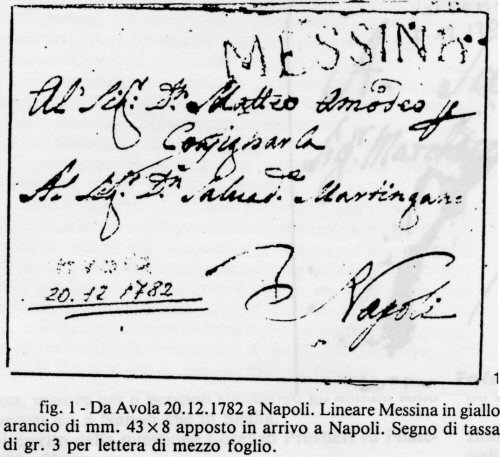 MESSINA
Al Sig.r D.n Matteo Amodeo
Consignarla
Al Sig.r D.n Salvad.re Martingan
AVOLA
20.12 1782
3 Napoli
1
fig. 1 - Da Avola 20.12.1782 a Napoli. Lineare Messina in giallo
arancio di mm. 43×8 apposto in arrivo a Napoli. Segno di tassa
di gr. 3 per lettera di mezzo foglio.